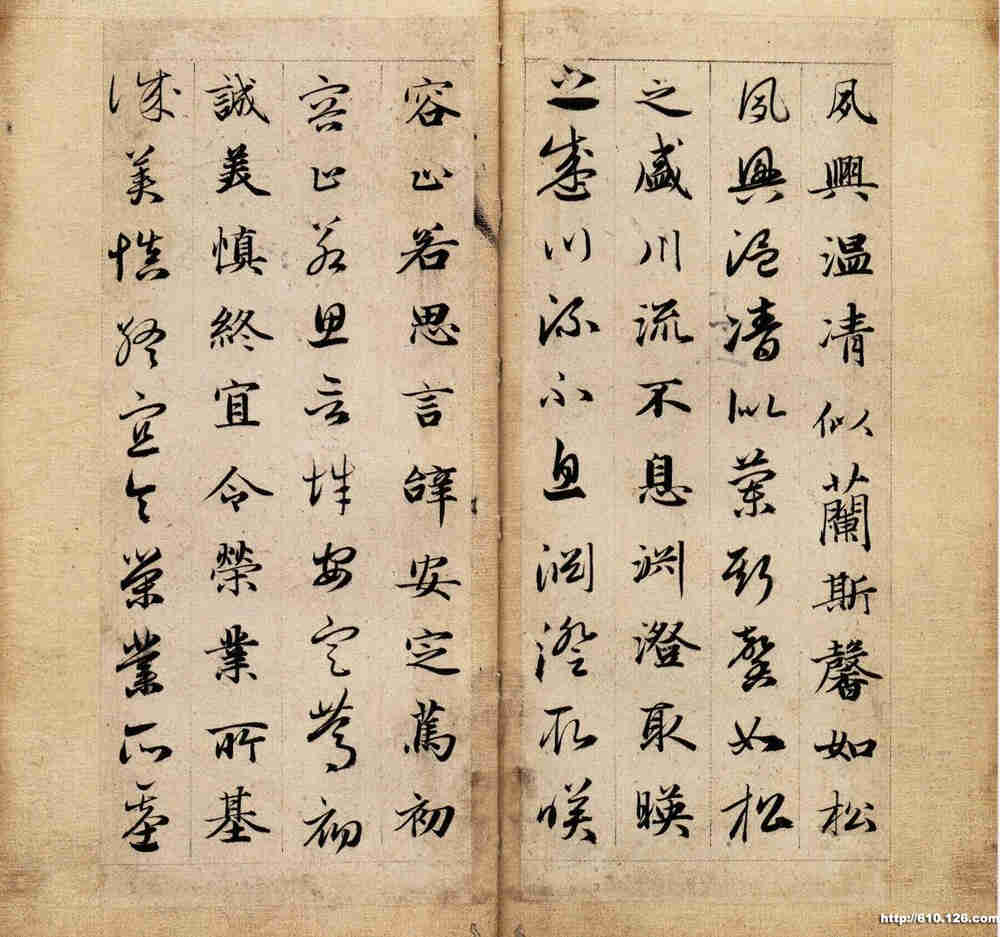 夙興温凊似蘭斯馨如松
夙興温凊似蘭斯馨如松
之盛川流不息淵澄取暎
之盛川流不息淵澄取暎
容止若思言辞安定篤初
容止若思言辞安定篤初
誠美慎終宜令榮業所基
誠美慎終宜令榮業所基
http://610.126.com